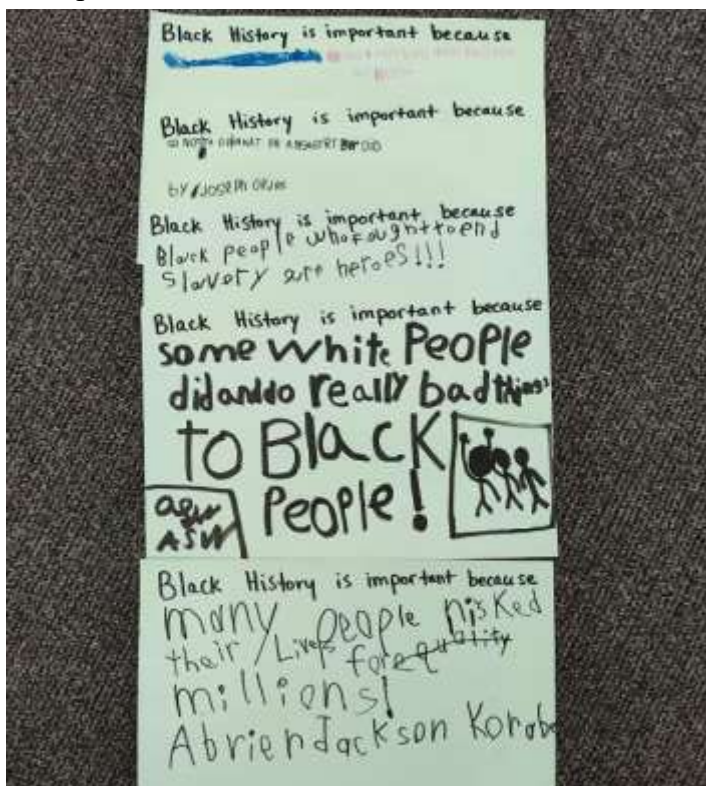 Black History is important because
Black History is important because
by Joseph
Black History is important because
Black people who fought to end
Slavery are heroes!!!
Black History is important because
some white PeoPle
did and do really bad things
TO BlacK
PeoPle!
ASW
Black History is important because
many people risked
their Lives for equality
millions!
Abrien Jackson